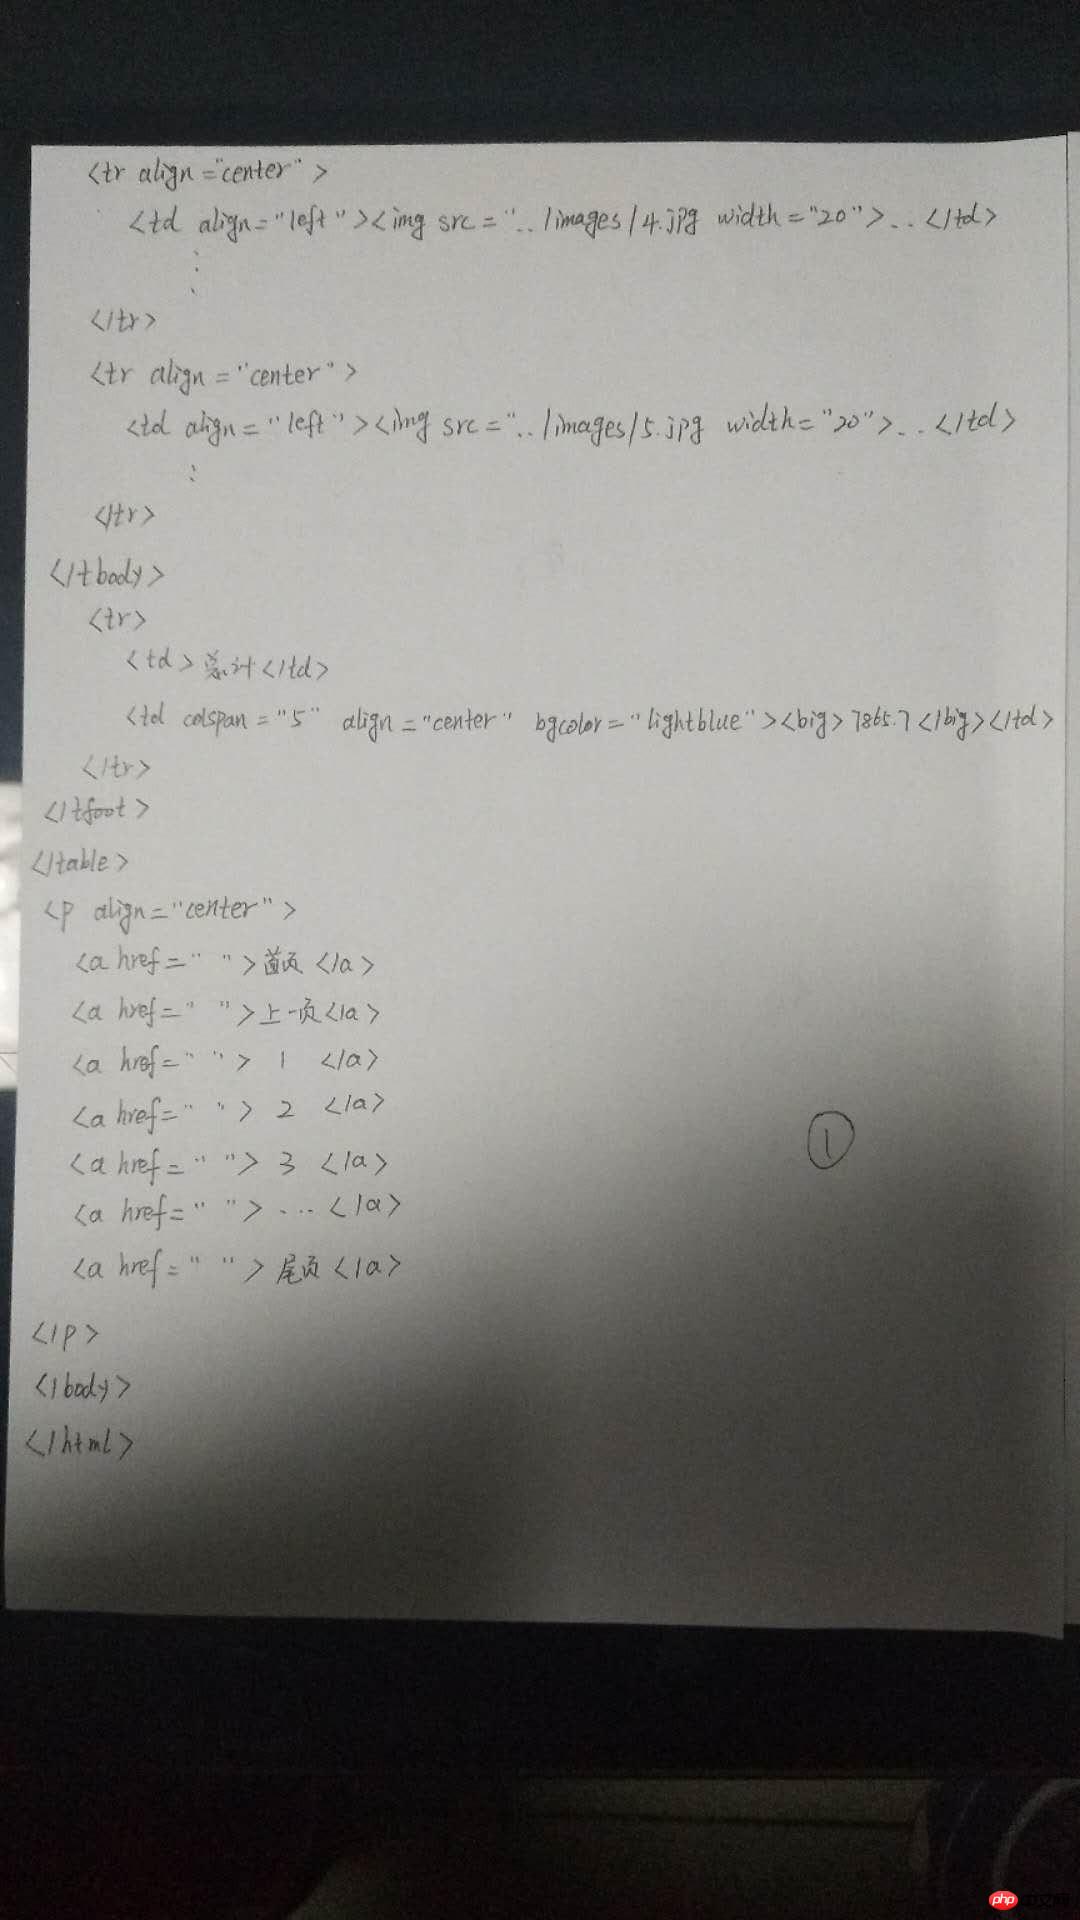 <tr align="center">
<td align="left"><img src="../images/4.jpg width="20">...</td>
⋮
</tr>
<tr align="center">
<td align="left"><img src="../images/5.jpg width="20">...</td>
⋮
</tr>
</tbody>
<tr>
<td>总计</td>
<td colspan="5" align="center" bgcolor="lightblue"><big>7865.7</big></td>
</tr>
</tfoot>
</table>
<p align="center">
<a href=" ">首页</a>
<a href=" ">上一页</a>
<a href=" "> 1 </a>
<a href=" "> 2 </a>
<a href=" "> 3 </a>
<a href=" "> ... </a>
<a href=" ">尾页</a>
①
</p>
</body>
</html>
php